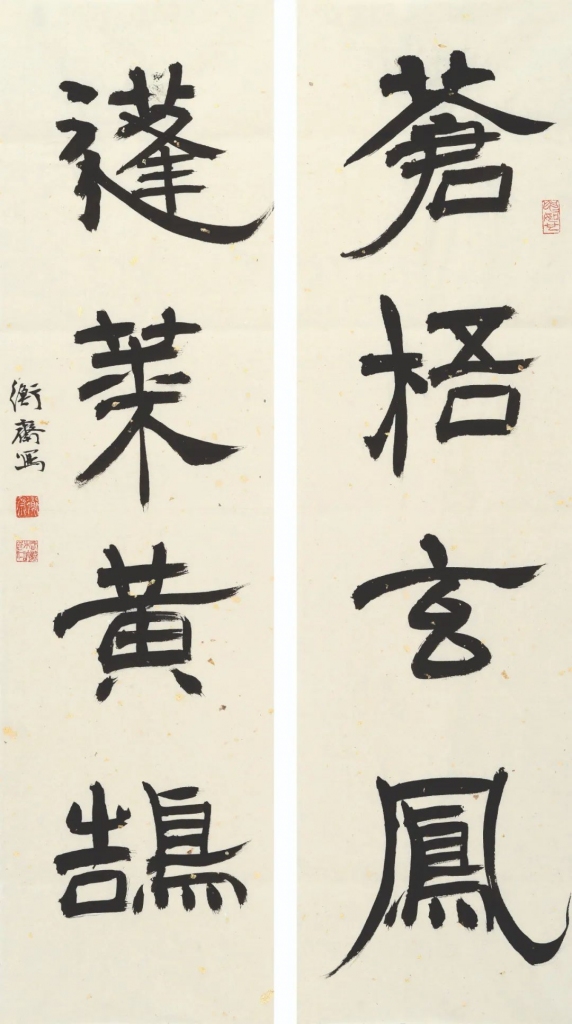 蒼梧玄鳳
蓬萊黃鵠
衡齋寫